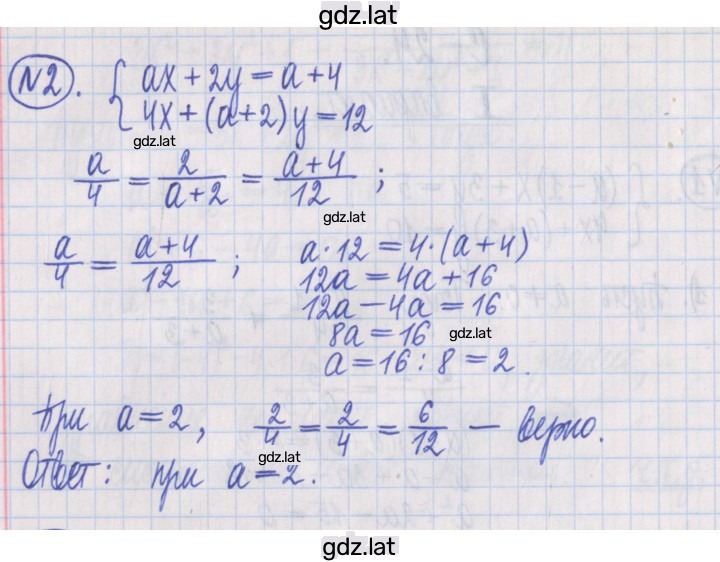 gdz.lat
N2. { ax + 2y = a + 4
4x + (a+2)y = 12
gdz.lat
a/4 = 2/(a+2) = (a+4)/12 ;
gdz.lat
a/4 = (a+4)/12 ; a · 12 = 4 · (a+4)
12a = 4a + 16
12a − 4a = 16
8a = 16 gdz.lat
a = 16 : 8 = 2.
При a = 2, 2/4 = 2/4 = 6/12 – верно.
gdz.lat
Ответ: при a = 2.
gdz.lat